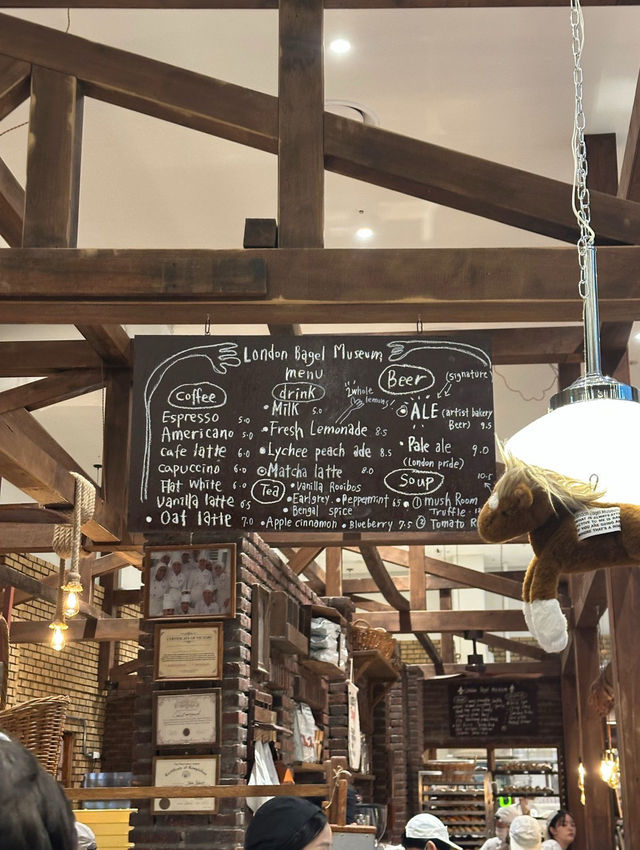 London Bagel Museum
menu
Coffee
Espresso 5.0
Americano 5.0
cafe latte 6.0
cappuccino 6.0
Flat White 6.0
Vanilla latte 6.5
Oat latte 7.0
drink
Milk 5.0
2 whole lemons!
Fresh Lemonade 8.5
Lychee peach ade 8.5
Matcha latte 8.0
Tea
Vanilla Rooibos
Earlgrey Peppermint 6.5
Bengal spice
Apple cinnamon Blueberry 7.5
Beer
signature
ALE (artist bakery
Beer) 9.5
Pale ale 9.0
(London pride)
Soup
10.5
① mush Room
Truffle
② Tomato R
London Bagel Museum